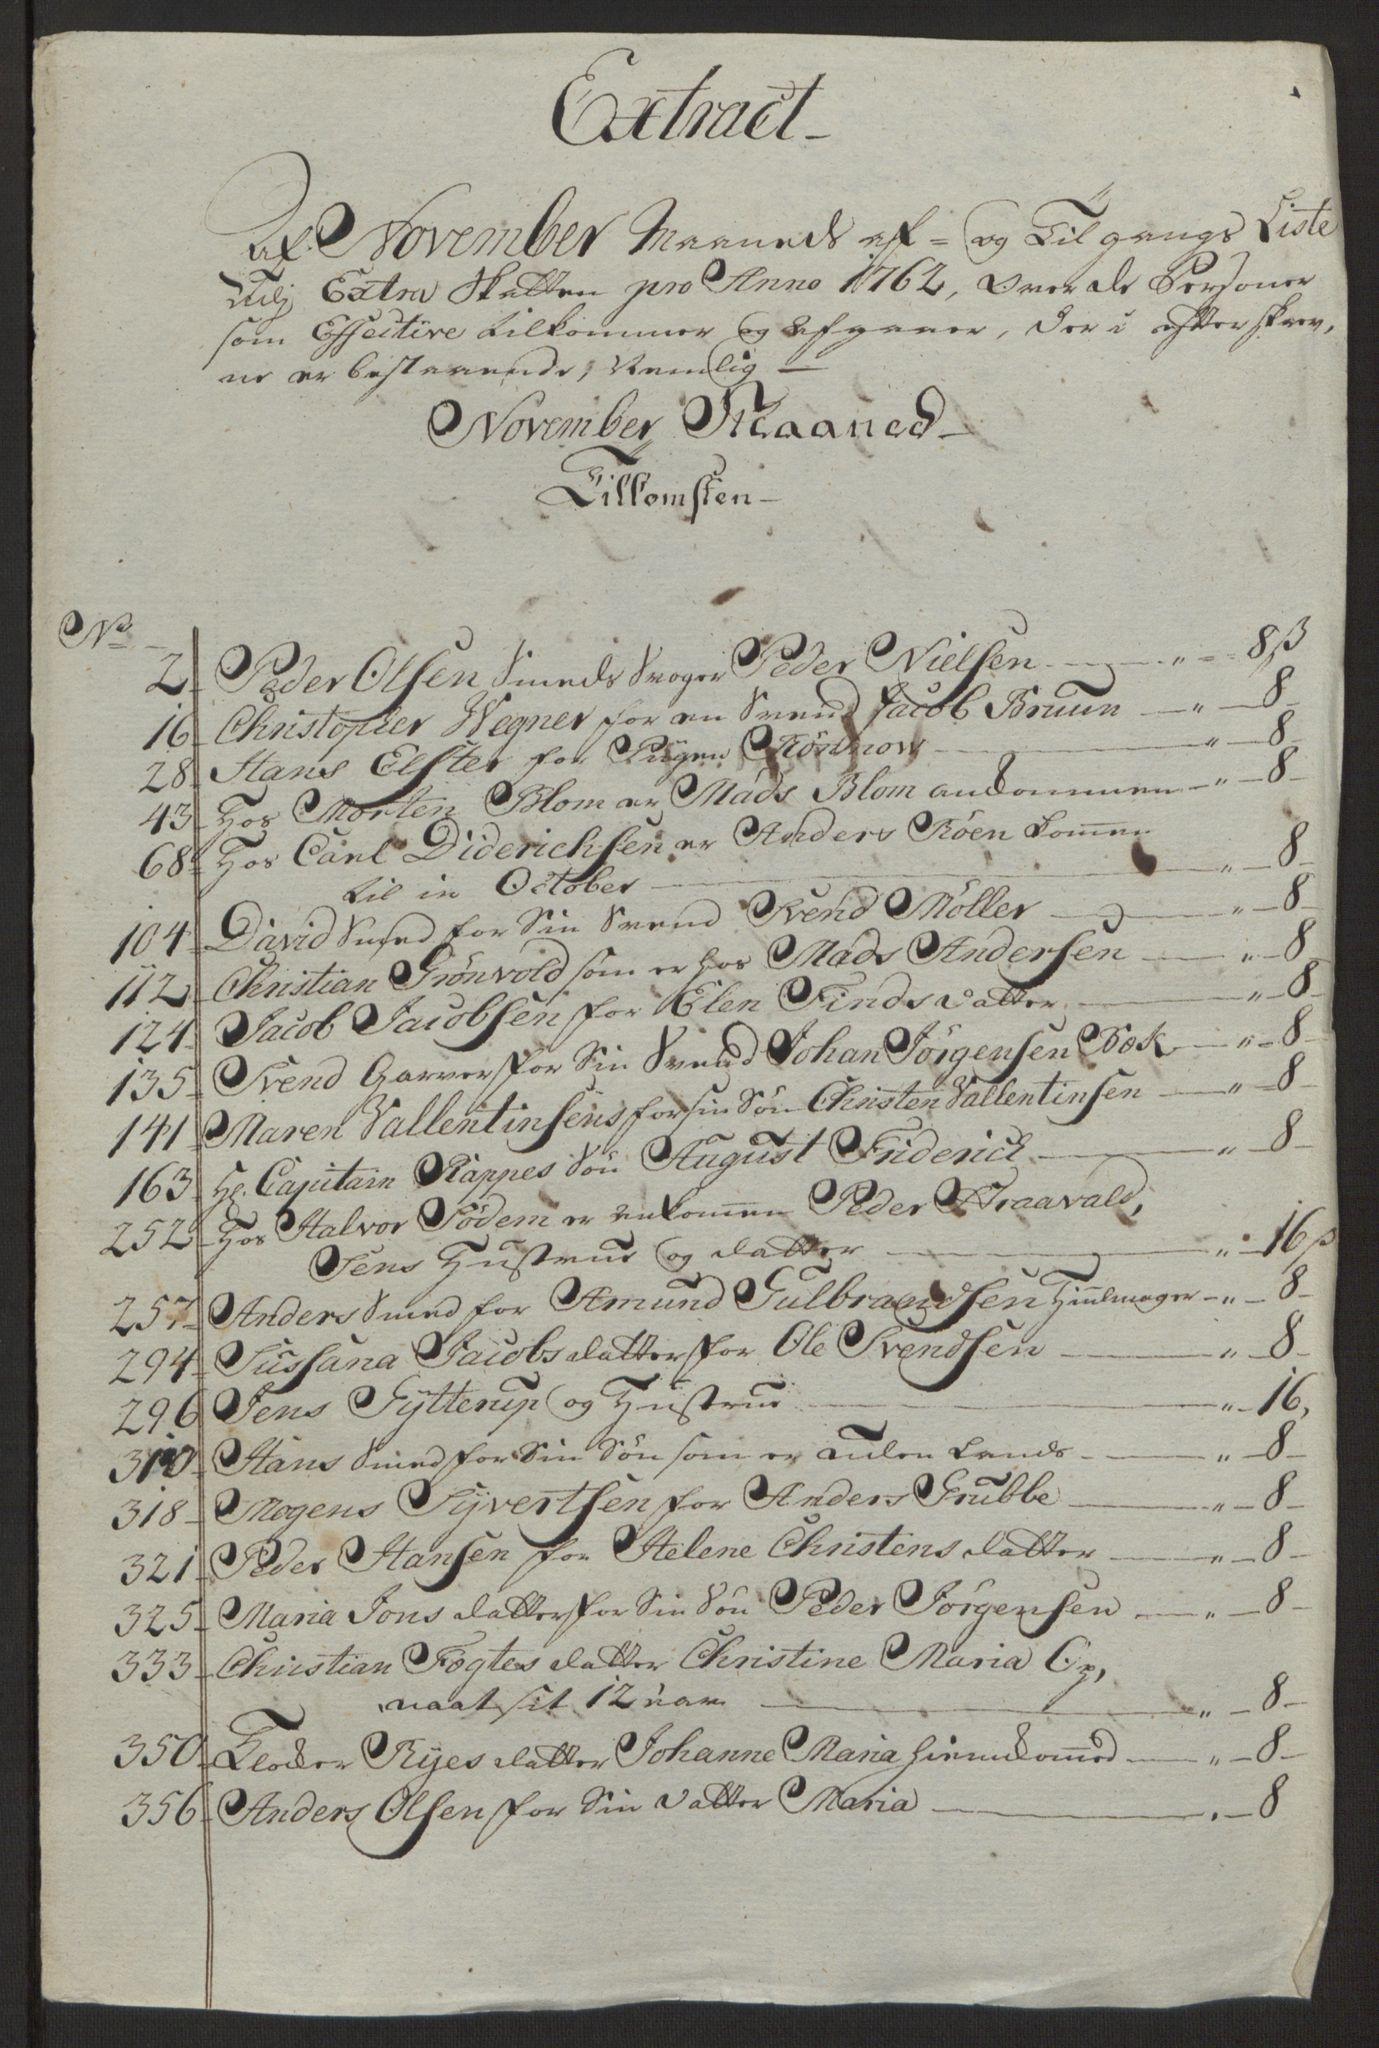 Extract
af November Maaneds af- og Til gangs Liste
Extra Skatten pro Anno 1762, over de Persouner
som Effective tilkommer og afgaaer, der i efterskrev,
ne er bestaaende, Nemlig
November Maaned
Tilkomsten
No
2 Peder Olsen Smeds Svoger Peder Nielsen 8 β
16 Christopher Wegner for en Svend Jacob Bruun 8
28 Hans Elster for Pigen 8
43 Hos Morten Blom er Mads Blom ankommen 8
68 Hos Carl Diderichsen er Anders Röen kommen
til in October 8
104 David Smed for Sin Svend Svend Möller 8
112 Christian Grönvold som er hos Mads Andersen 8
124 Jacob Jacobsen for Elen Finds datter 8
135 Svend Garver for Sin Svend Johan Jörgensen Bok 8
141 Maren Vallentinsens for sin Sön Christen Vallentinsen 8
163 Hr. Capitain Rappes Sön August Friderich 8
252 Hos Halvor Södem er ankommen Peder Kraavald,
Jens Hustrue og datter 16 β
257 Anders Smed for Amund Gulbrandsen Hiulmager 8
294 Sussana Jacobs datter for Ole Svendsen 8
296 Jens Gytterup og Hustrue 16
310 Hans Smed for Sin Sön som er uden Lands 8
318 Mogens Syvertsen for Anders Grubbe 8
321 Peder Hansen for Helene Christens datter 8
325 Maria Jons datter for Sin Sön Peder Jörgensen 8
333 Christian Fogtes datter Christine Maria Op,
naaet sit 12 aar 8
350 Floder Ryes datter Johanne Maria hiemkommed 8
356 Anders Olsen for Sin datter Maria 8